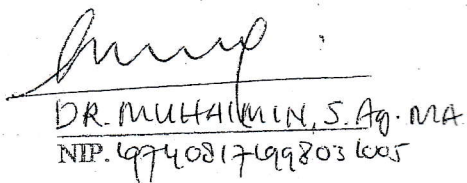 DR. MUHAIMIN, S. Ag. MA
NIP. 197408171998031005